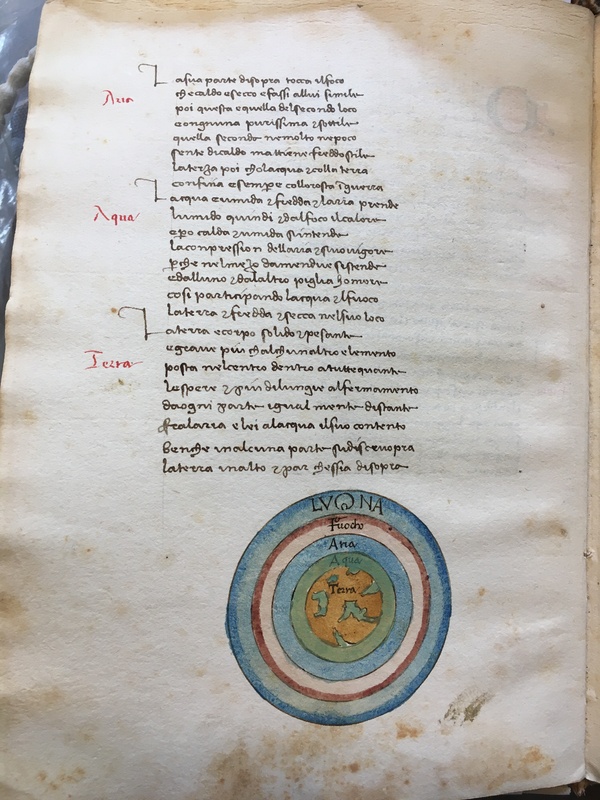 Aria
La sua parte disopra tocca ilfoco
che caldo esecco efassi allui simile
poi questa equella delsecondo loco
congnuna purissima & sottile
quella seconda nemolto nepoco
sente dicaldo mattiene freddostile
laterza poi chollacqua & colla terra
confina esempre collorosta īguerra
Aqua
Lacqua eumida & fredda & laria prende
lumido quindi & dalfoco ilcalore
epo calda & umida sintende
laconpression dellaria & suo vigore
perche nelmezo damendue sistende
edalluno & dalaltro piglia homore
cosi participando lacqua elfuoco
laterra & fredda & secca nelsuo loco
Terra
Laterra ecorpo solido & pesante
egrave piu chalchunaltro elemento
posta nelcentro dentro atuttequante
lespere & piu dilungie alfermamento
daogni parte igual mente distante
fralaria elei alacqua ilsuo contento
benche inalcuna parte sidiscuopra
laterra inalto & par chessia disopra
LVONA
Fuocho
Aria
Aqua
Terra